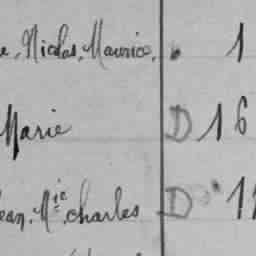 Nicolas, Maurice, 1
Marie D 16
Jean, Nic, charles D